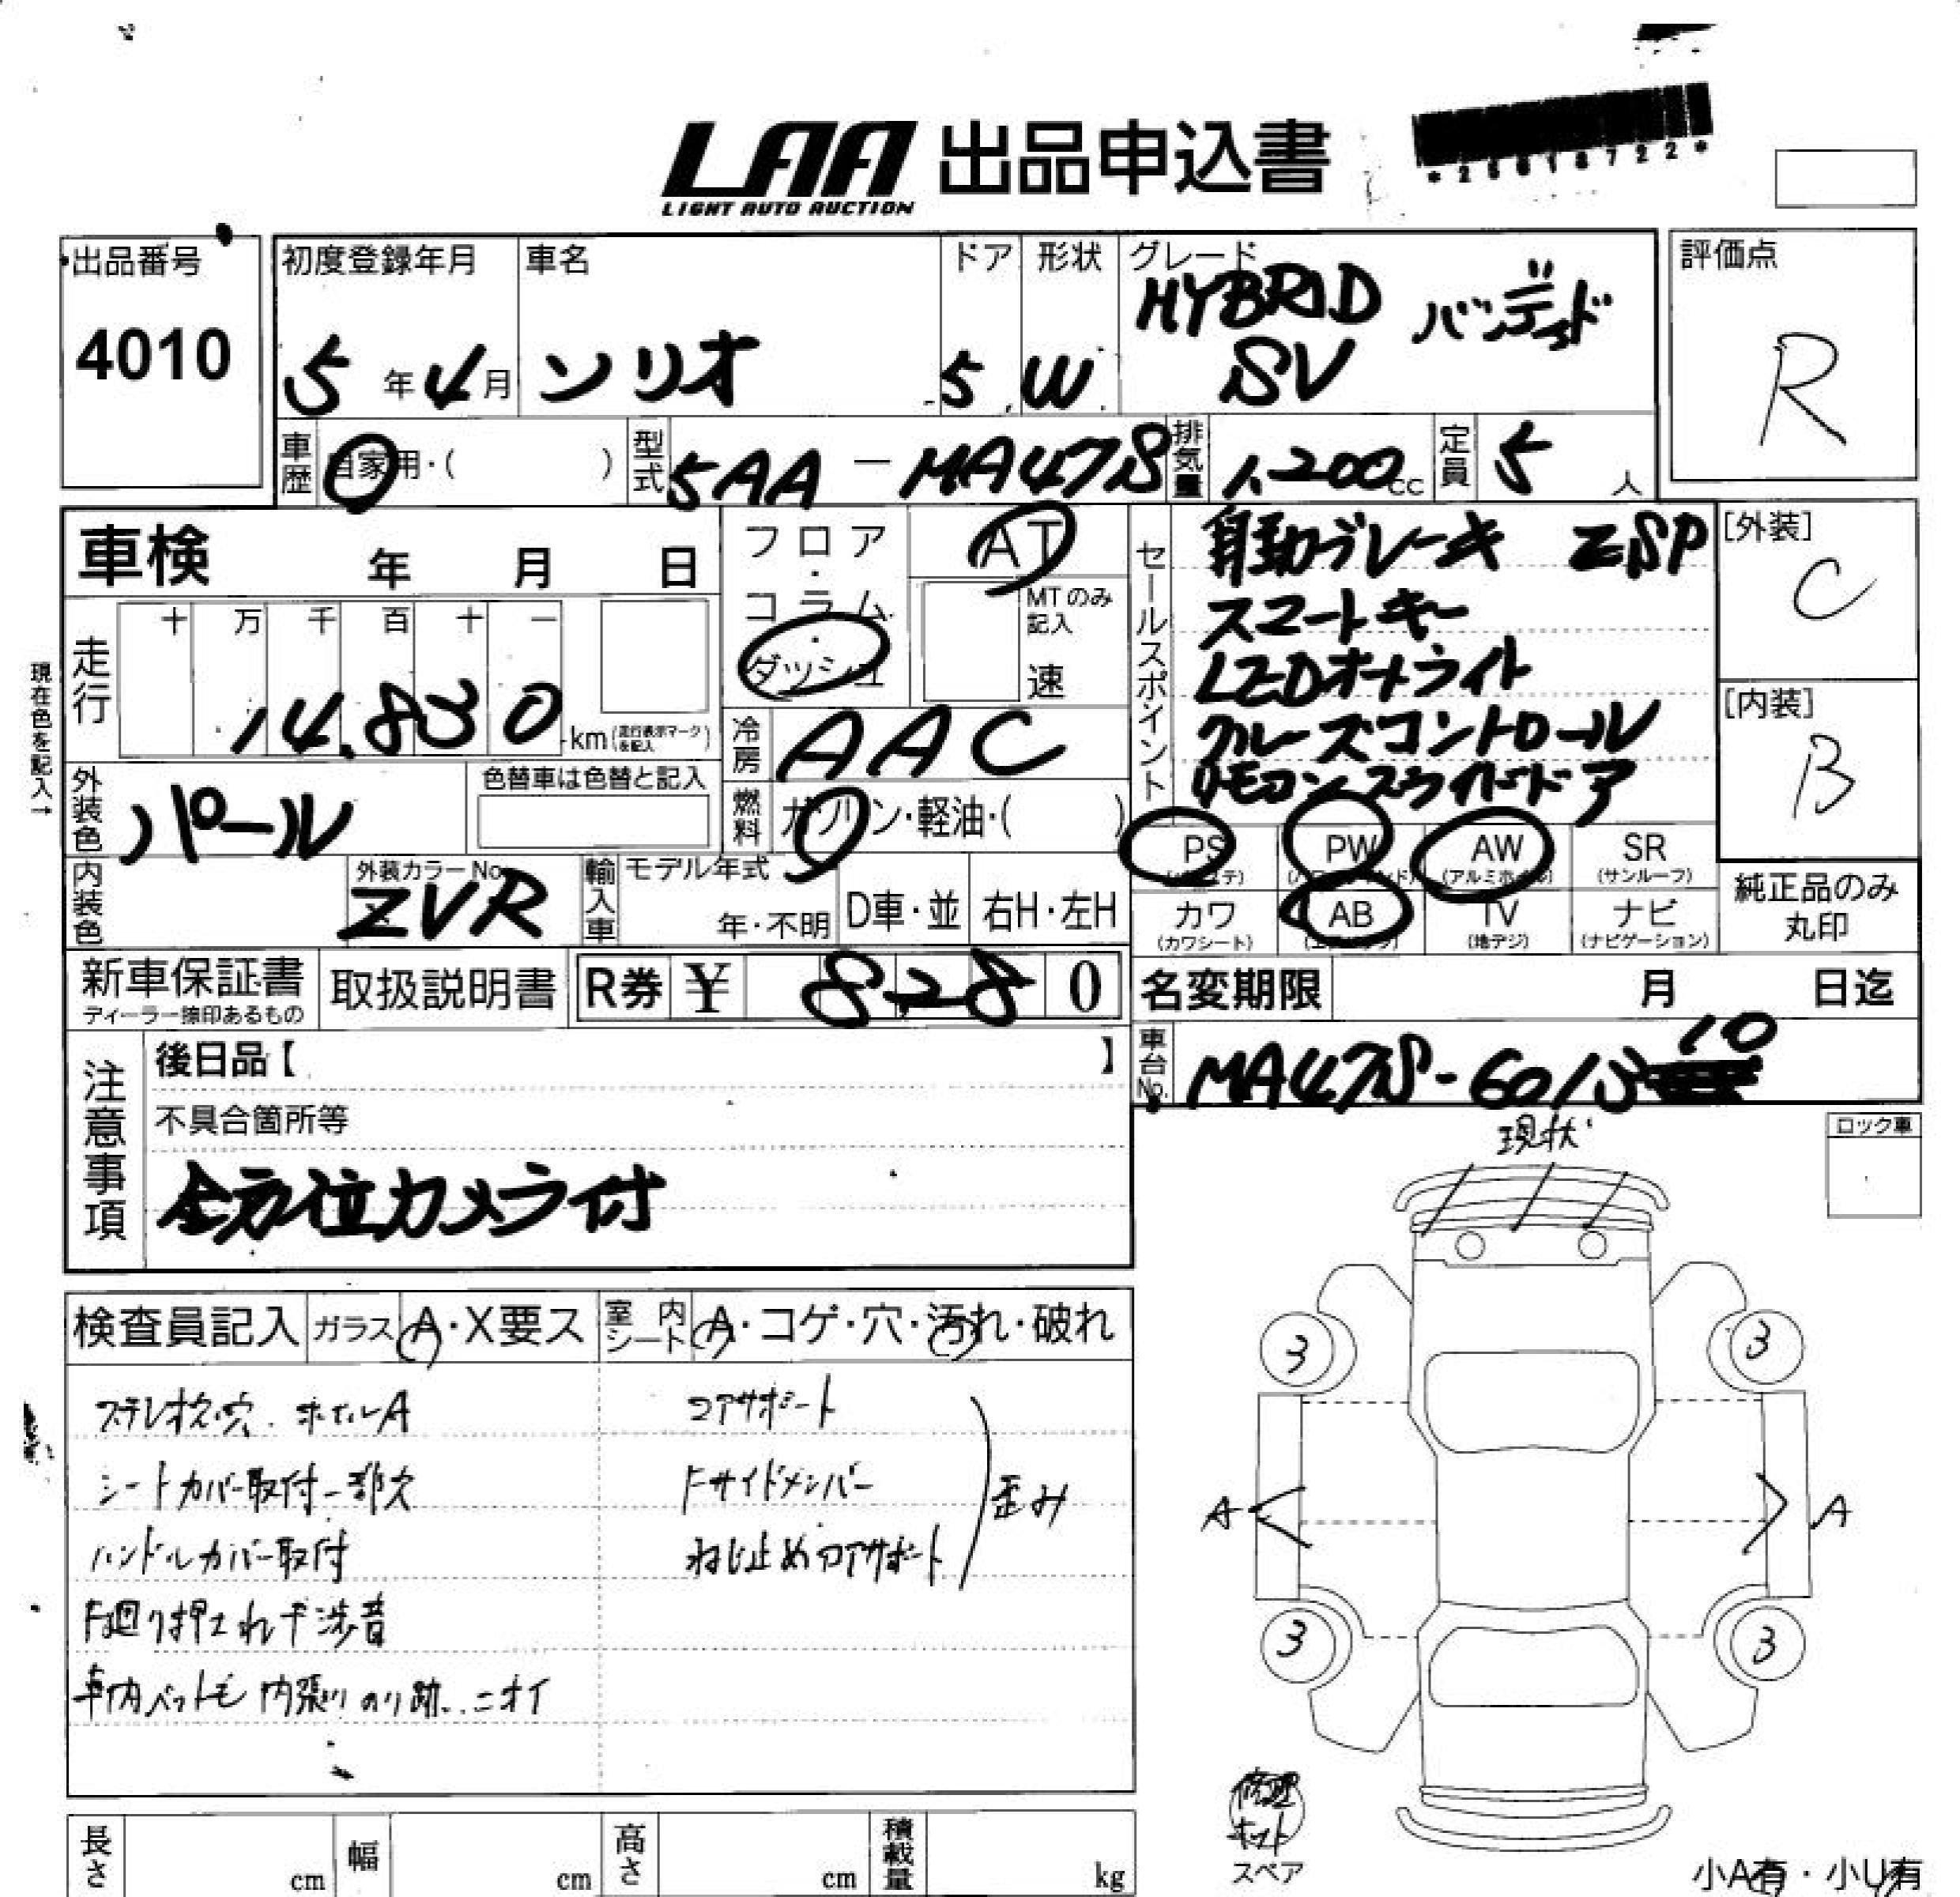 LAA 出品申込書
LIGHT AUTO AUCTION
出品番号
4010
初度登録年月
5年4月
車名
ソリオ
ドア
5
形状
W
グレード
HYBRID バンディット
SV
評価点
R
車歴
自家用・( )
型式
5AA-MA47S
排気量
1,200cc
定員
5人
車検 年 月 日
フロア・コラム・ダッシュ
AT
MTのみ記入
速
セールスポイント
自動ブレーキ ESP
スマートキー
LEDオートライト
クルーズコントロール
リモコンスライドドア
[外装]
C
[内装]
B
現在色を記入→
走行
十 万 千 百 十 一
14,830 km(走行表示マークを記入)
冷房
AAC
外装色
パール
色替車は色替と記入
燃料
ガソリン・軽油・( )
PS
PW
AW
(アルミホイル)
SR
(サンルーフ)
カワ
(カワシート)
AB
TV
(地デジ)
ナビ
(ナビゲーション)
純正品のみ
丸印
内装色
外装カラーNo.
ZVR
輸入車
モデル年式
年・不明
D車・並
右H・左H
新車保証書
ディーラー捺印あるもの
取扱説明書
R券 ¥ 8280
名変期限 月 日迄
注意事項
後日品【 】
車台No.
MA47S-601310
不具合箇所等
全方位カメラ付
現状
ロック車
検査員記入
ガラス A・X要ス
室内シート A・コゲ・穴・汚れ・破れ
ステレオ欠穴. ホイルA
コアサポート
シートカバー取付一部欠
Fサイドメンバー
歪み
ハンドルカバー取付
ねじ止めコアサポート
F廻り押され干渉音
車内ペット毛 内張りのり跡..ニオイ
3
3
A
A
3
3
修理キット
スペア
小A有・小U有
長さ cm
幅 cm
高さ cm
積載量 kg